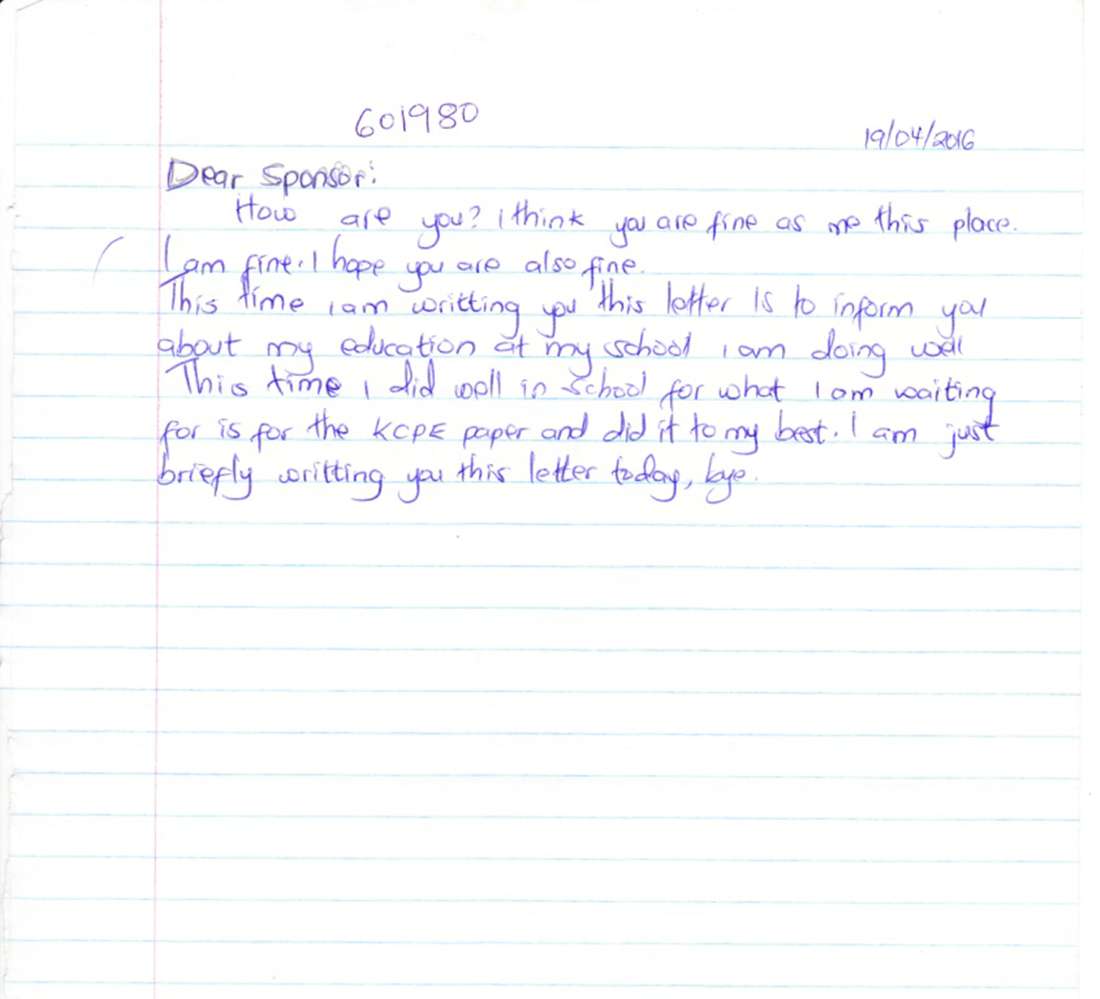 601980
19/04/2016
Dear Sponsor:
How are you? i think you are fine as me this place.
I am fine. I hope you are also fine.
This time i am writting you this letter Is to inform you
about my education at my school i am doing well
This time i did well in school for what I am waiting
for is for the KCPE paper and did it to my best. I am just
briefly writting you this letter today, bye.